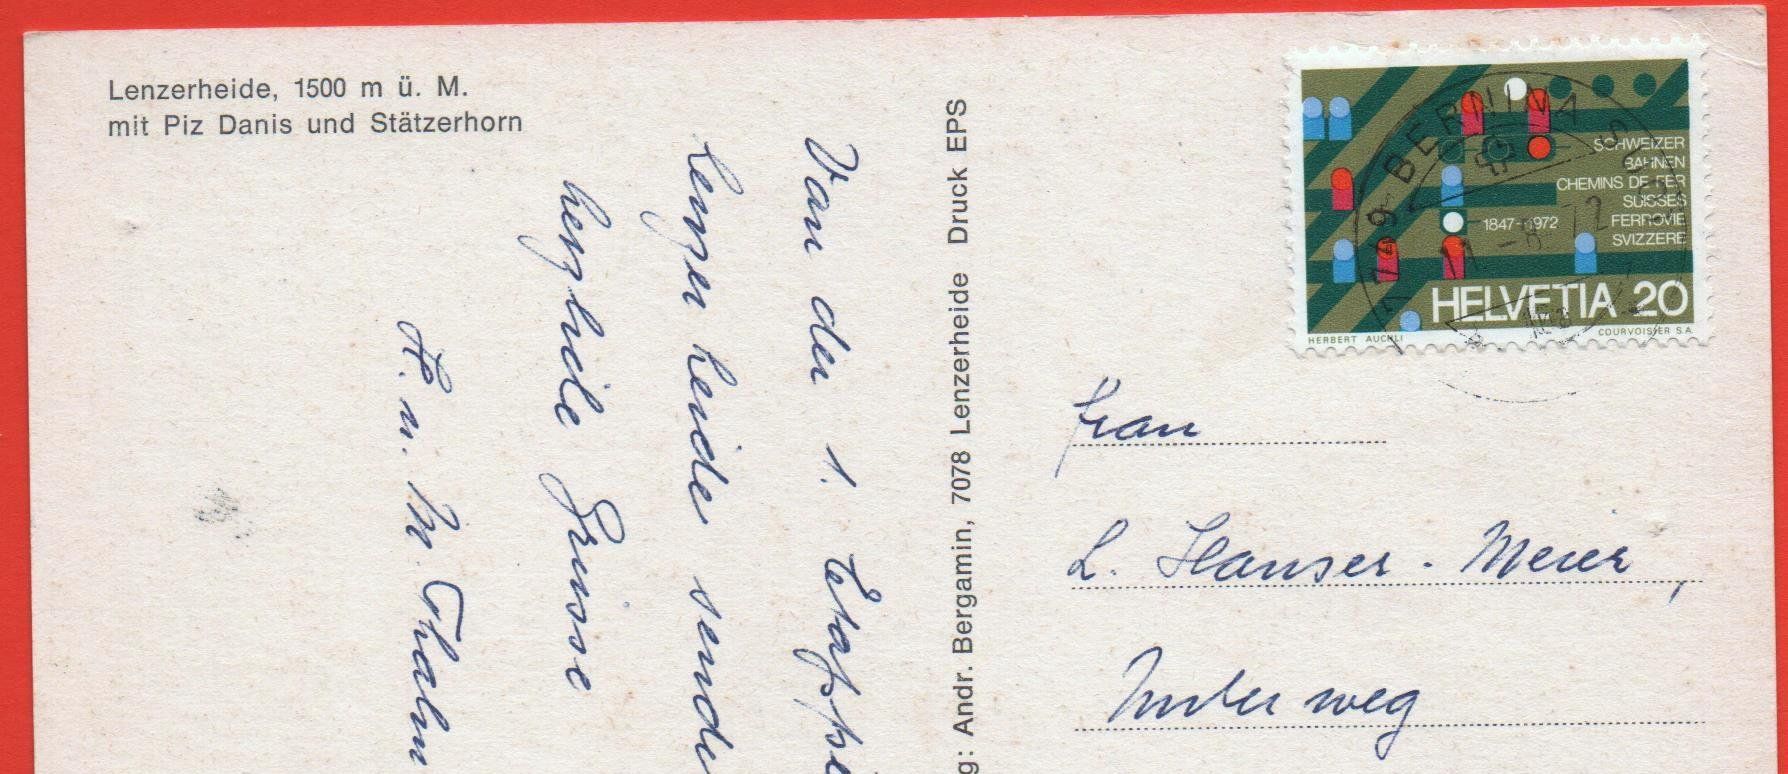 Lenzerheide, 1500 m ü. M.
mit Piz Danis und Stätzerhorn
Von der 1. Etappe
Lenzerheide sende
herzliche Grüsse
H. u. M. Thalm
g: Andr. Bergamin, 7078 Lenzerheide Druck EPS
SCHWEIZER
BAHNEN
CHEMINS DE FER
SUISSES
1847-1972 FERROVIE
SVIZZERE
HELVETIA 20
HERBERT AUCHLI COURVOISIER S.A.
BERNINA
-8.72
Frau
L. Hauser-Meier,
Unterweg